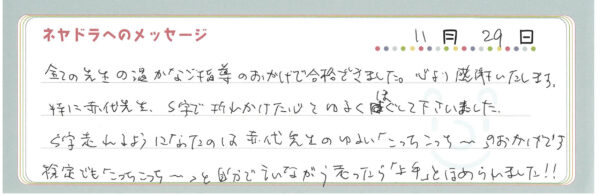 ネヤドラへのメッセージ
11月 29日
全ての先生の温かなご指導のおかげで合格できました。心より感謝いたします。
特に赤代先生、S字で折れかけた心をゆるくほぐして下さいました。
S字走れるようになったのは赤代先生のゆるい「こっちこっち〜」のおかげです
検定でも「こっちこっち〜」と自分で言いながら走ったら「上手」とほめられました!!